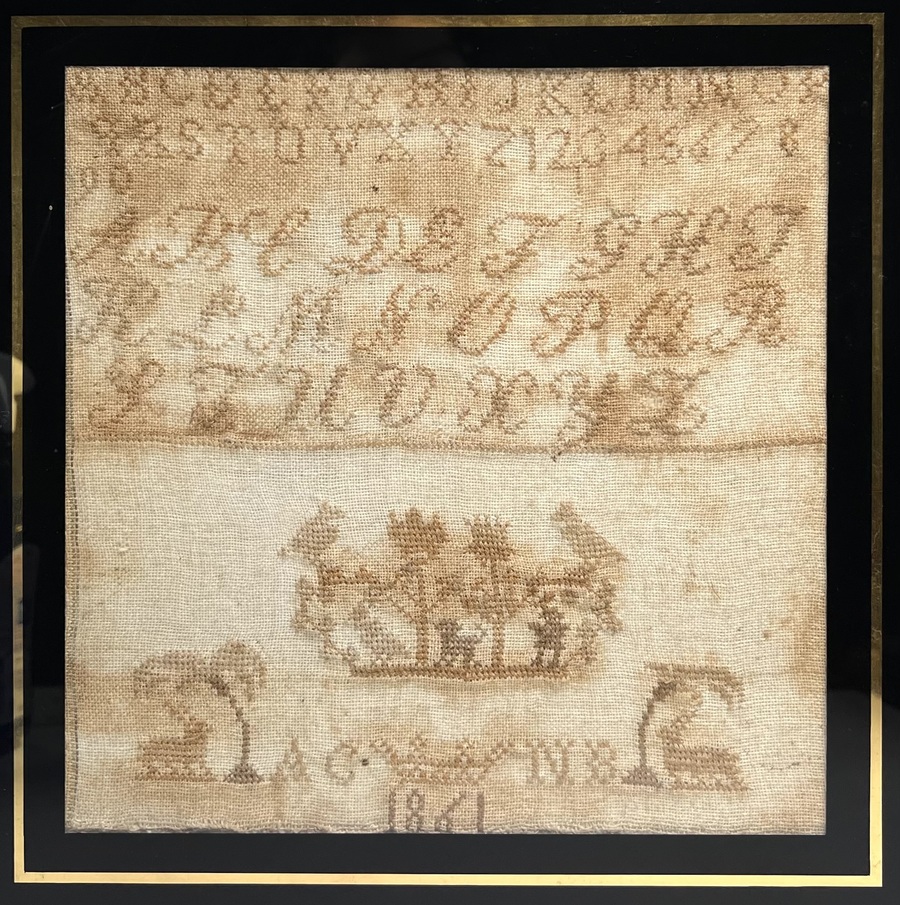 A B C D E F G H I J K L M N O P
Q R S T U V X Y Z 1 2 3 4 5 6 7 8
9 0
A B C D E F G H I
K L M N O P Q R
S T U V X Y Z
A C N B
1861